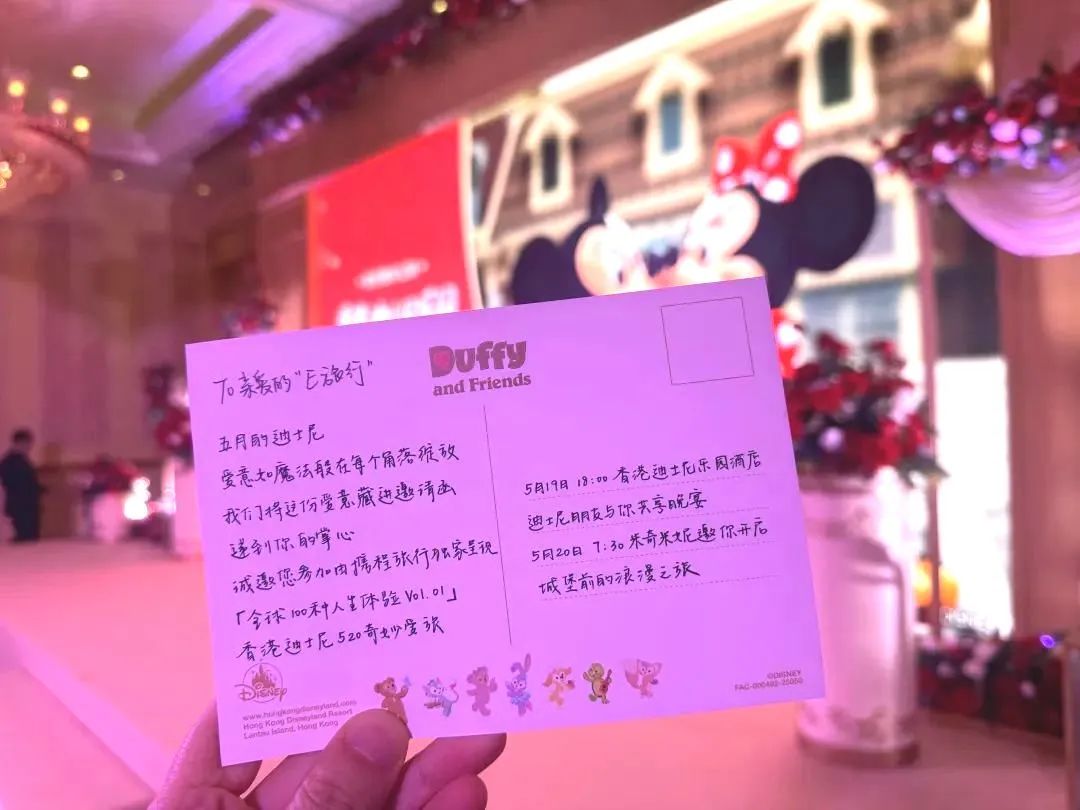 To 亲爱的"E旅行"
Duffy
and Friends
五月的迪士尼
爱意如魔法般在每个角落绽放
我们将这份爱意藏进邀请函
递到你的掌心
诚邀您参加由携程旅行独家呈现
「全球100种人生体验 Vol.01」
香港迪士尼520奇妙爱旅
5月19日 18:00 香港迪士尼乐园酒店
迪士尼朋友与你共享晚宴
5月20日 7:30 米奇米妮邀你开启
城堡前的浪漫之旅
DISNEY
www.hongkongdisneyland.com
Hong Kong Disneyland Resort
Lantau Island, Hong Kong
©DISNEY